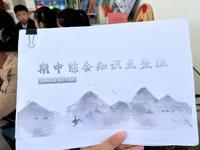 期中综合知识点整理